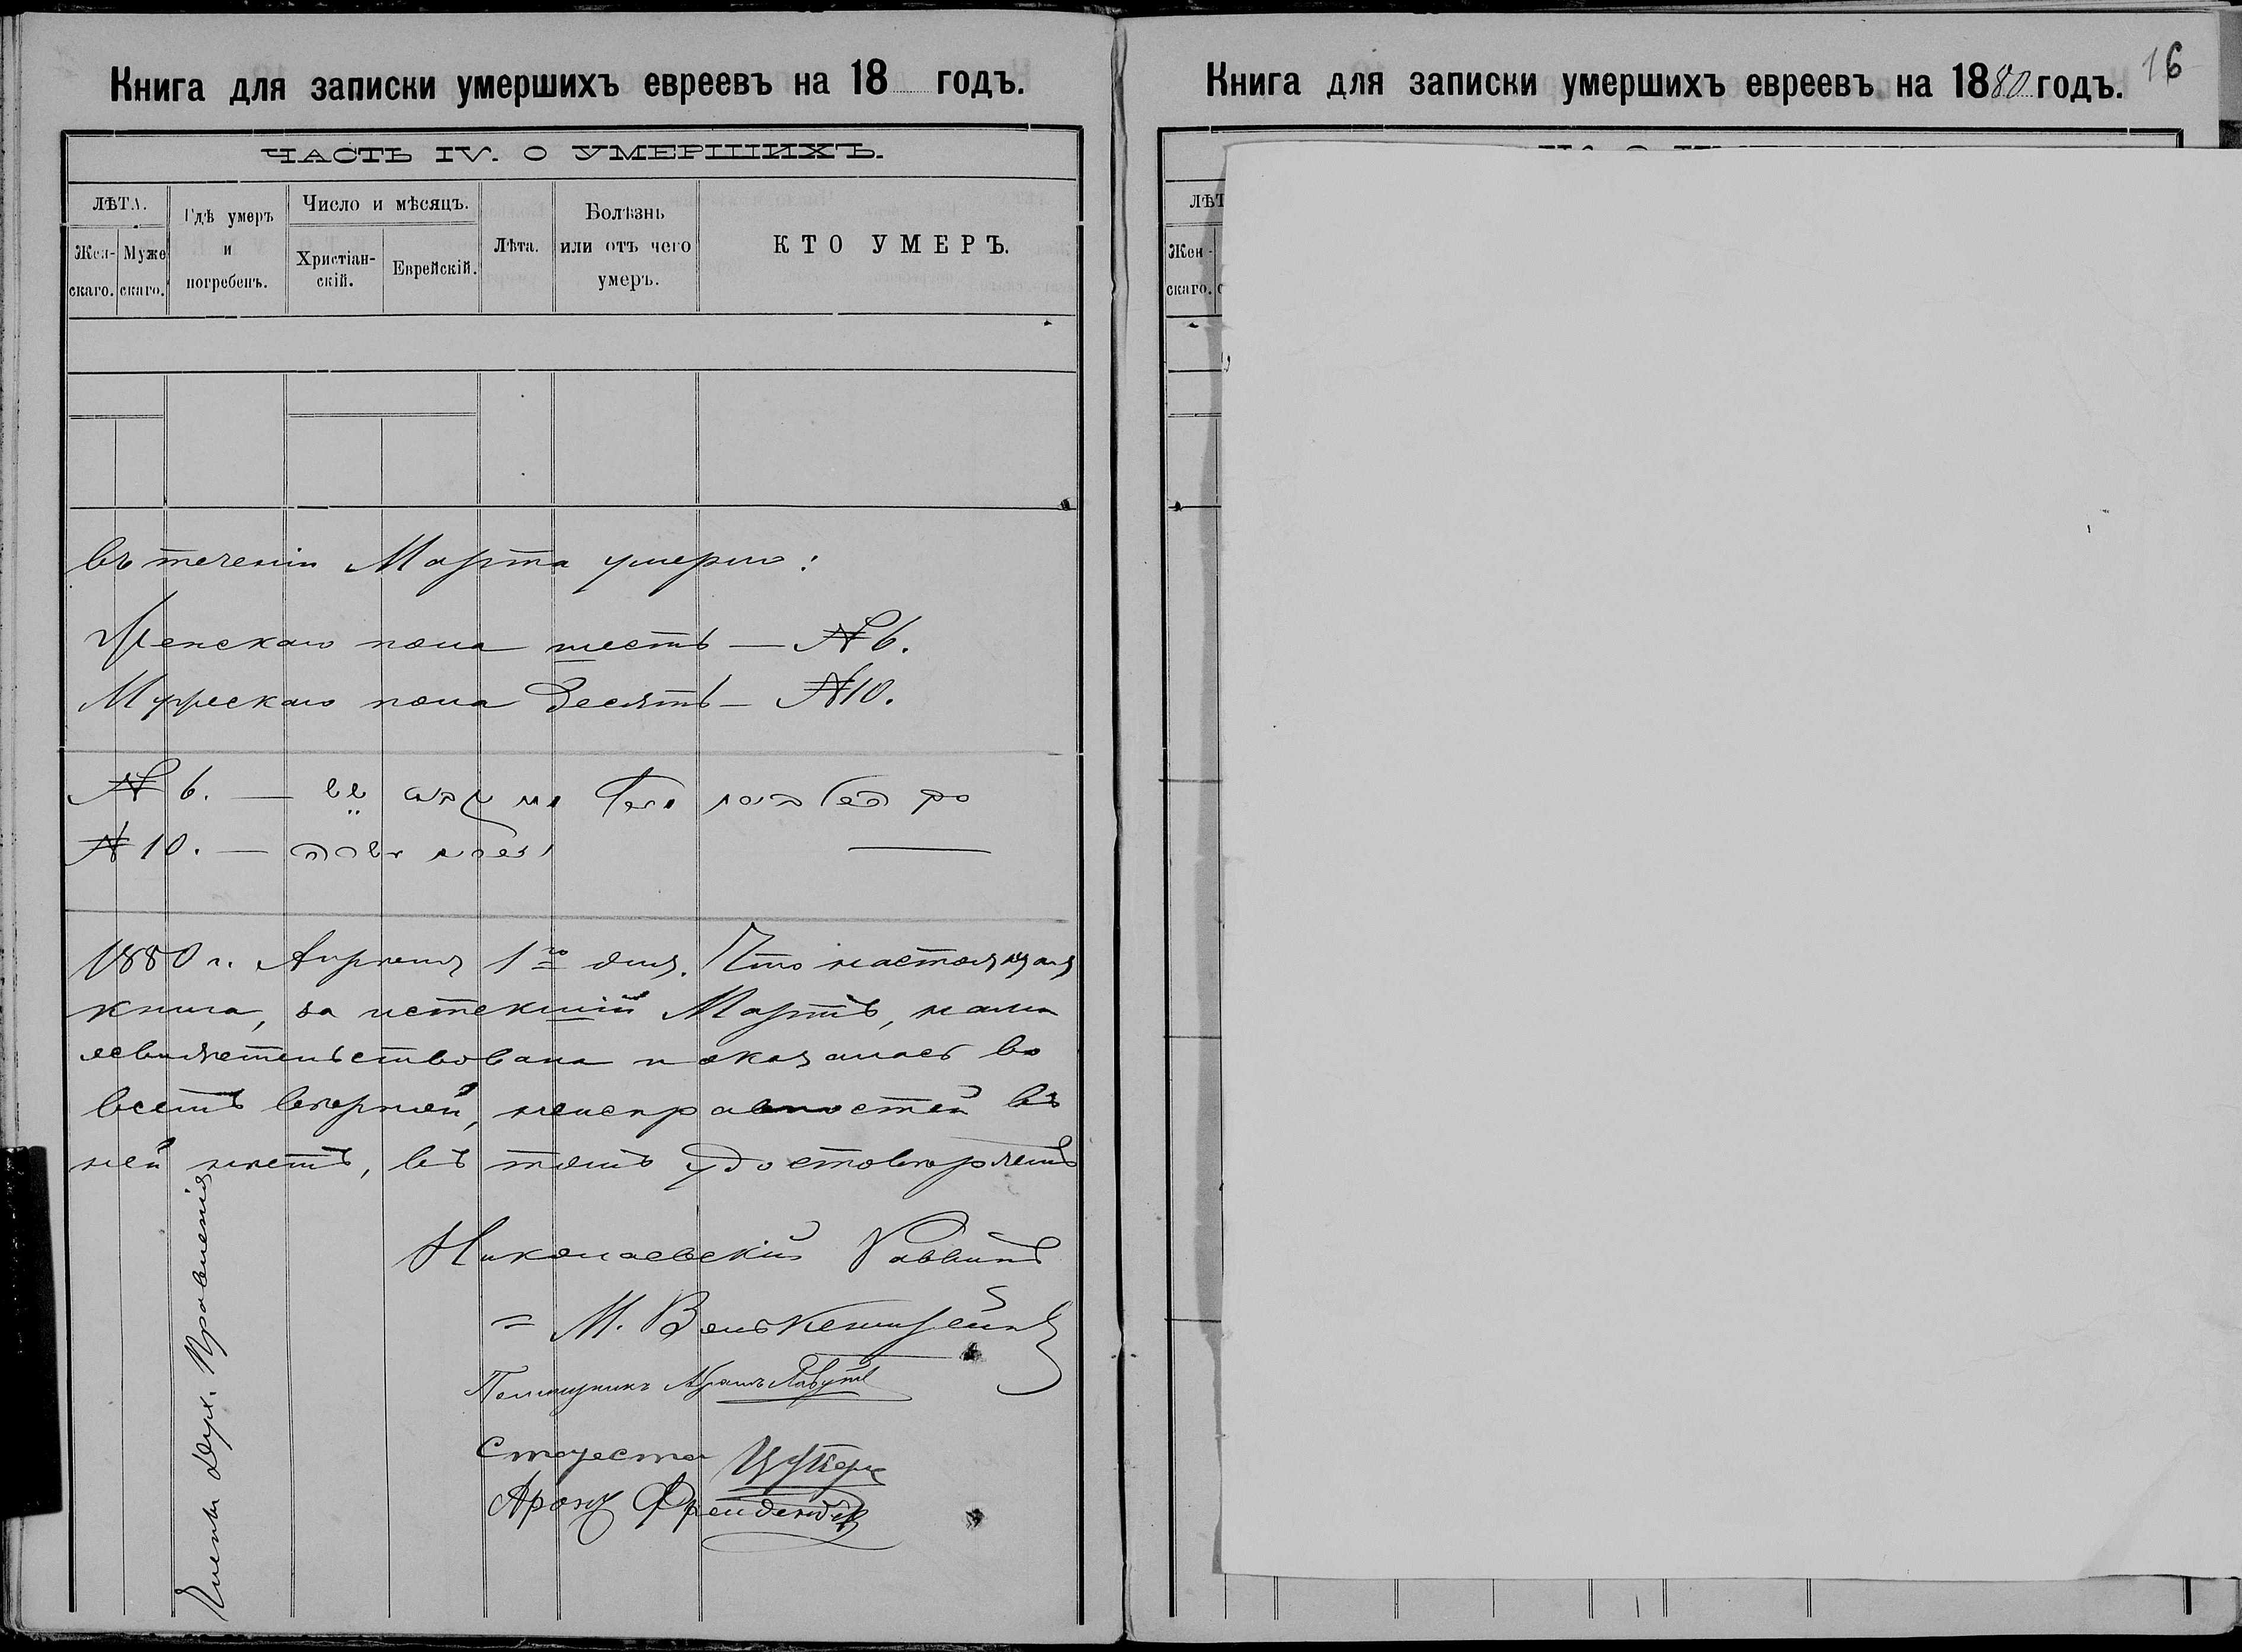 Книга для записки умершихъ евреевъ на 18 годъ.
ЧАСТЬ IV. О УМЕРШИХЪ.
ЛѢТА.
Жен-
скаго.
Муже
скаго.
Гдѣ умеръ
и
погребенъ.
Число и мѣсяцъ.
Христіан-
скій.
Еврейскій.
Лѣта.
Болѣзнь
или отъ чего
умеръ.
КТО УМЕРЪ.
въ теченіи Марта умерло:
Женскаго пола шесть — № 6.
Мужескаго пола десять — № 10.
№ 6. —
№ 10. —
1880 г. Апрѣля 1го дня. Что настоящая
книга, за истекшій Мартъ, нами
освидѣтельствована и оказалась во
всемъ вѣрной, неисправностей въ
ней нѣтъ, въ томъ удостовѣряемъ
Николаевскій Раввинъ
М.
Помощникъ Абрамъ
Староста Цукеръ
Аронъ
Члены Дух. Правленія
Книга для записки умершихъ евреевъ на 1880 годъ.
16
ЛѢТ
Жен-
скаго.